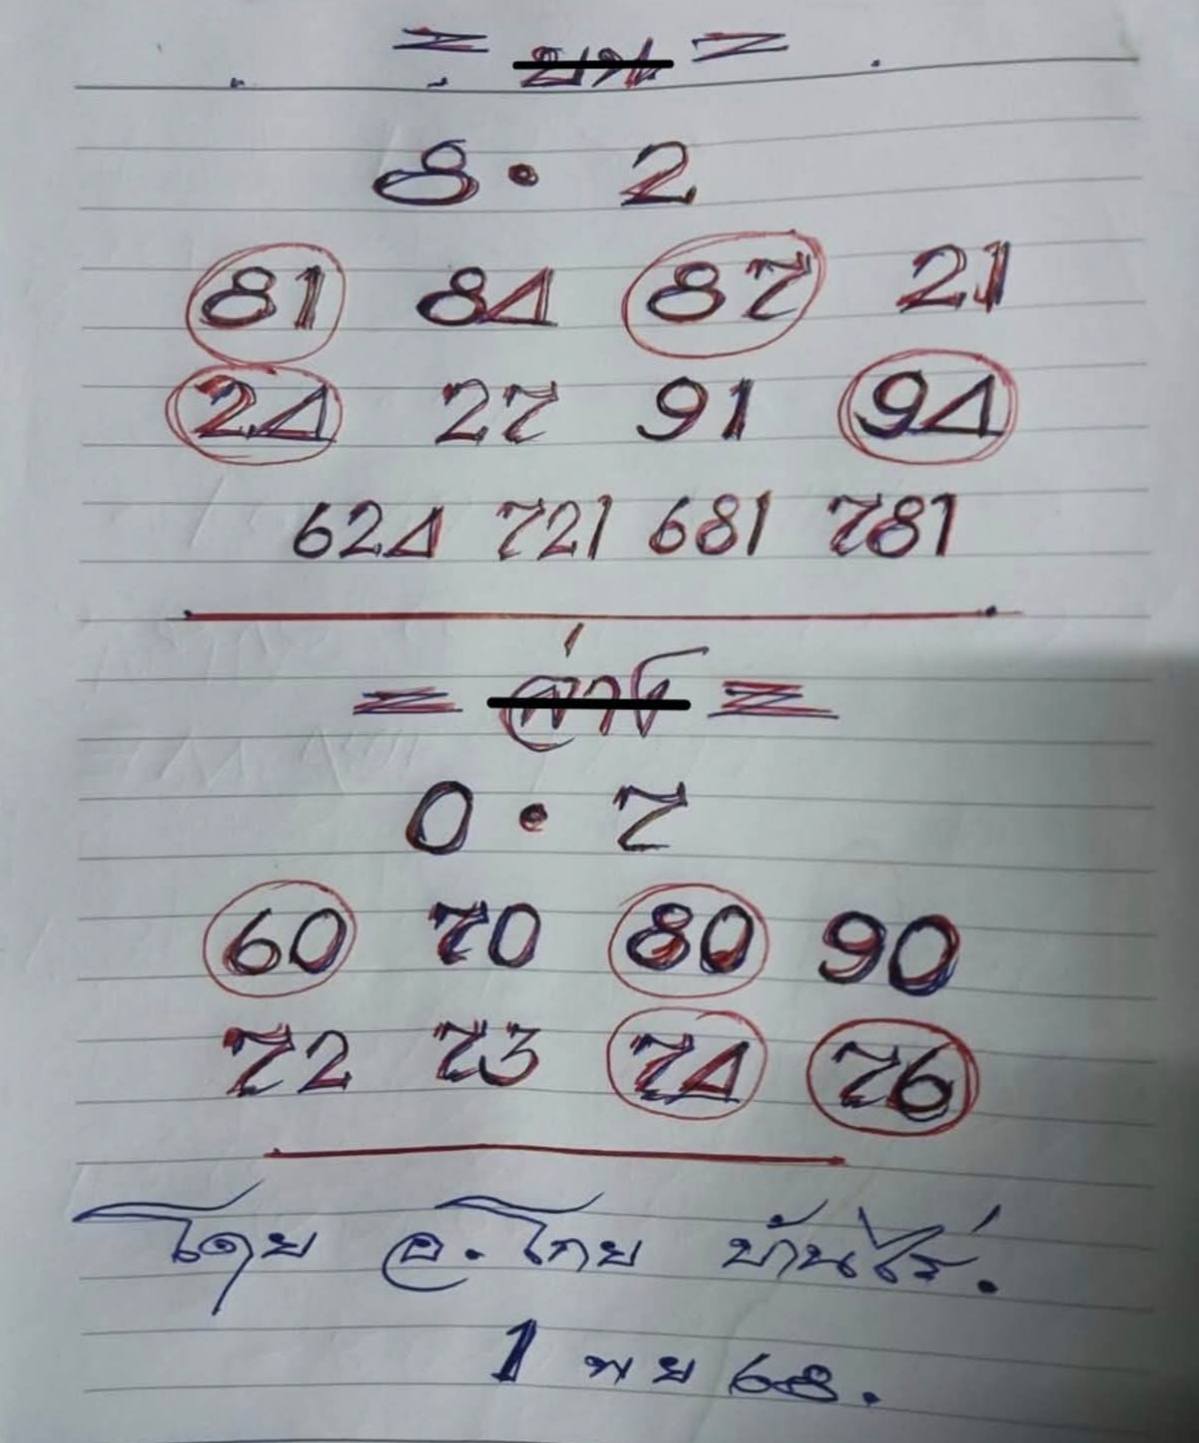 = บน =
8 · 2
81 84 87 21
24 27 91 94
624 721 681 781
= ล่าง =
0 · 7
60 70 80 90
72 73 74 76
โดย อ. โกย บ้านไร่.
1 พย 68.